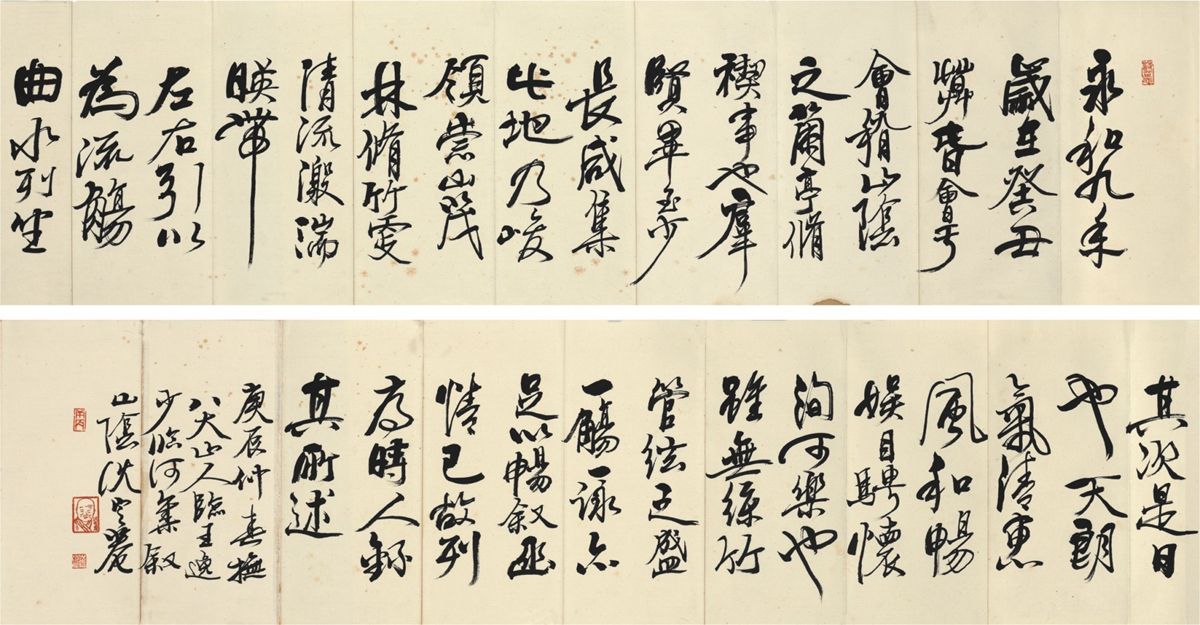 永和九年
歲在癸丑
暮春會于
會稽山陰
之蘭亭脩
禊事也羣
賢畢至少
長咸集
此地乃峻
領崇山茂
林脩竹更
清流激湍
暎帶
左右引以
為流觴
曲水列坐
其次是日
也天朗
氣清惠
風和暢
娛目騁懷
洵可樂也
雖無絲竹
管絃之盛
一觴一詠亦
足以暢叙幽
情已故列
序時人錄
其所述
庚辰仲春撫
八大山人臨王逸
少臨河集叙
山陰沈定庵